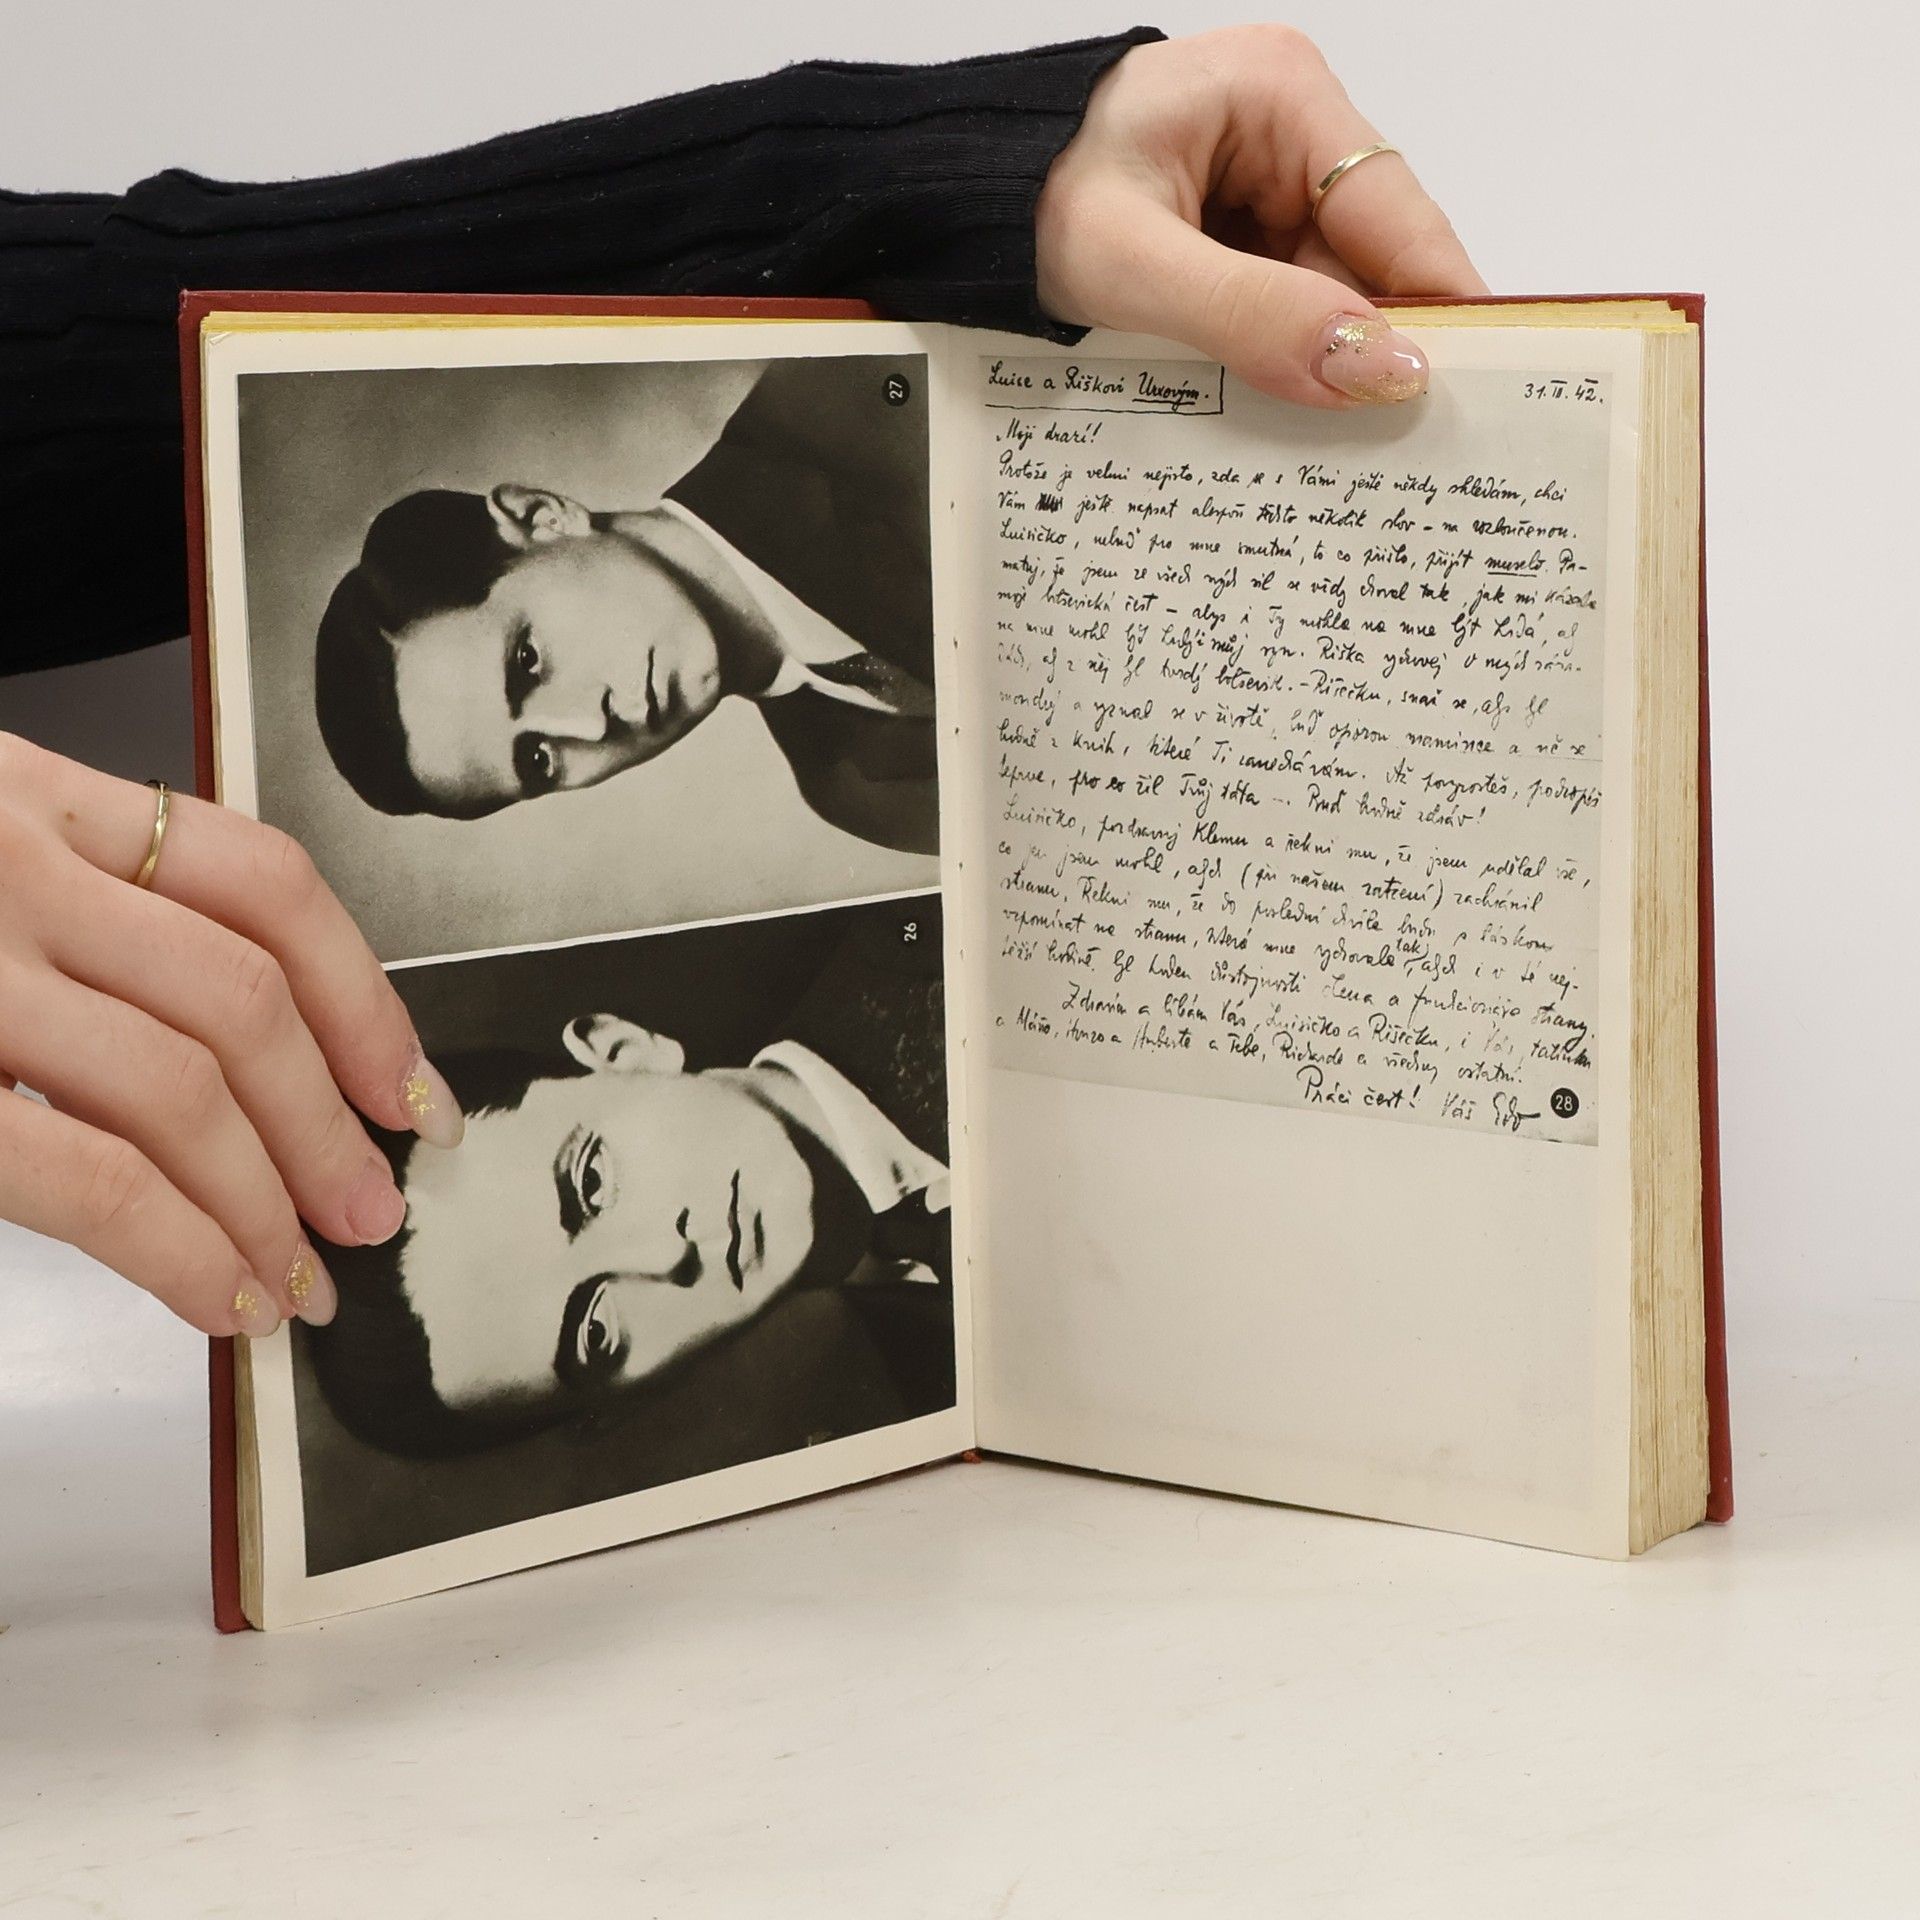 27
26
Luise a Riškovi Urxovým.
31. III. 42.
Moji drazí!
Protože je velmi nejisto, zda se s Vámi ještě někdy shledám, chci
Vám ještě napsat alespoň těchto několik slov – na rozloučenou.
Luisičko, nebuď pro mne smutná, to co přišlo, přijít muselo. Pa-
matuj, že jsem ze všech svých sil se vždy choval tak, jak mi kázala
moje bolševická čest – abys i Ty mohla na mne být hrdá, aď
na mne mohl být hrdý i můj syn. Riška vychovej v mých
ať z něj je tvrdý bolševik. – Rišečku, snaž se, abys byl
moudrý a vyznal se v životě, buď oporou mamince a uč se
hodně z knih, které Ti zanechávám. Až povyrosteš, pochopíš
teprve, pro co žil Tvůj táta –. Buď hodně zdráv!
Luisičko, pozdravuj Klemu a řekni mu, že jsem udělal vše,
co jen jsem mohl, abych (při našem zatčení) zachránil
stranu. Řekni mu, že do poslední chvíle budu s láskou
vzpomínat na stranu, která mne vychovala tak, abych i v té nej-
těžší hodině byl hoden důstojnosti člena a funkcionáře strany.
Zdravím a líbám Vás, Luisičko a Rišečku, i Vás, tatínku
a Máňo, Honzo a Huberte a Tebe, Richarde a všechny ostatní.
Práci čest! Váš Edo
28